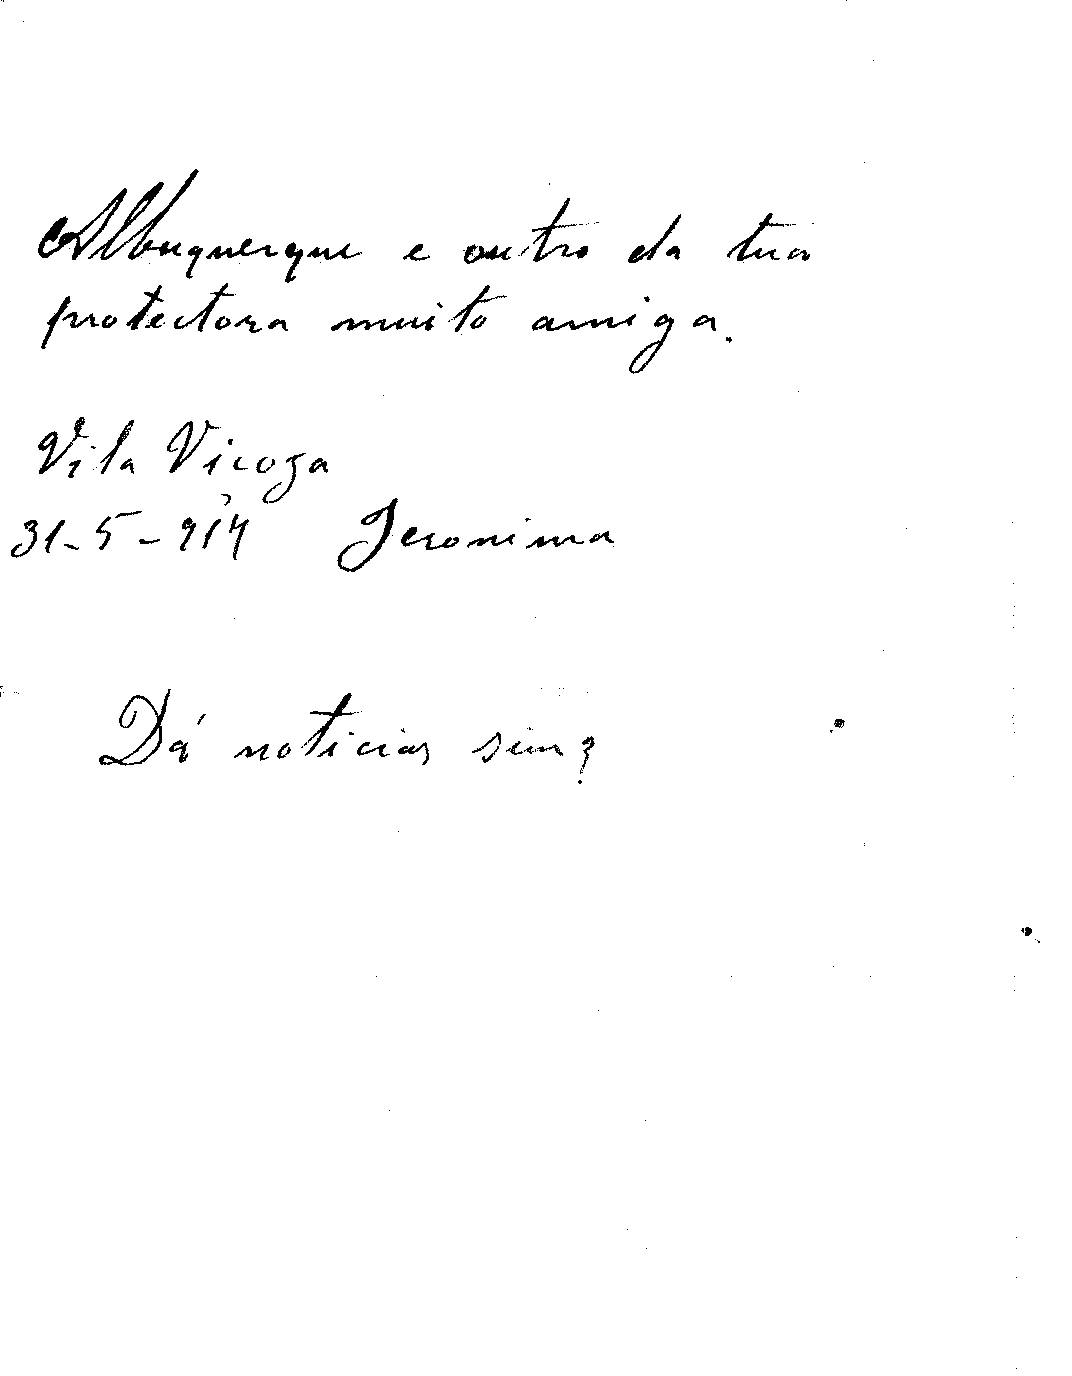 Albuquerque e outro da tua
protectora muito amiga.
Vila Viçoza
31-5-914 Jeronima
Dá noticias sim?